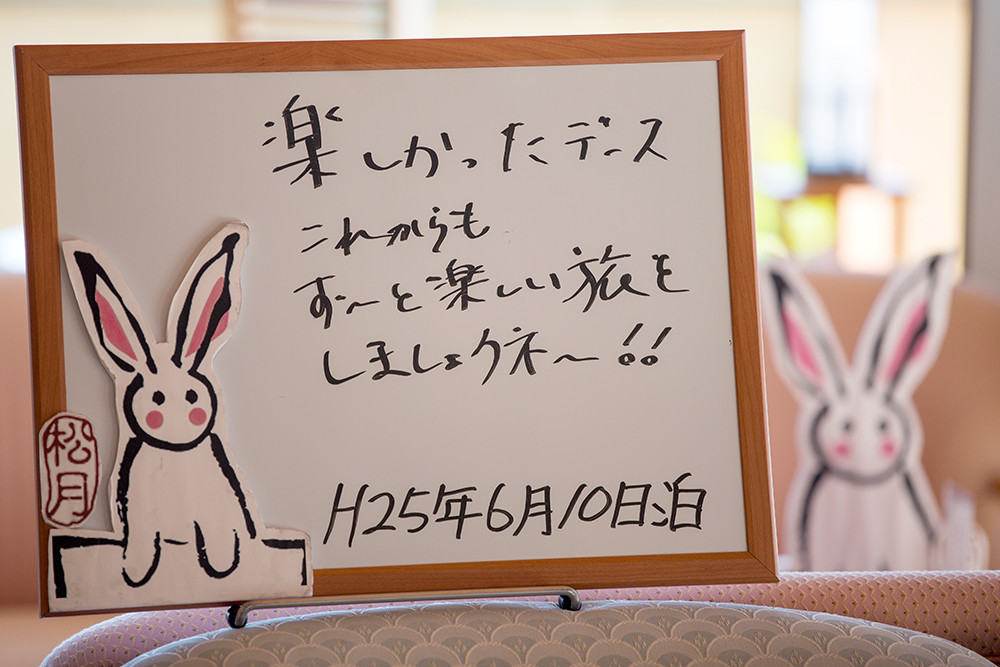 楽しかったデース
これからも
ず〜と楽しい旅を
しましょうネ〜!!
H25年6月10日泊
松月